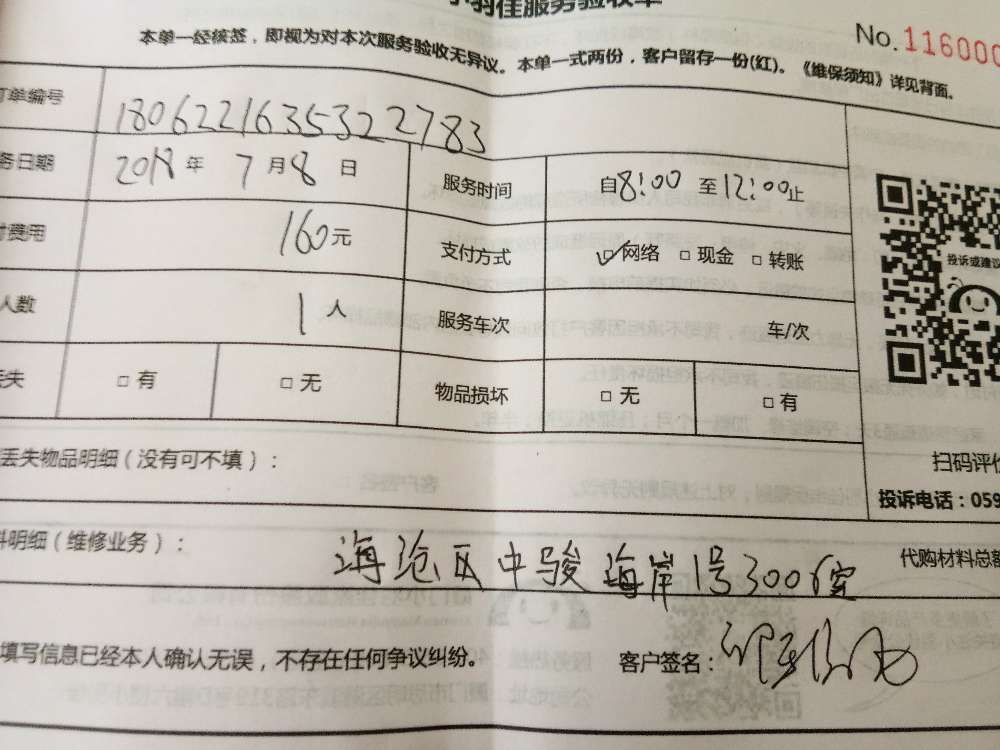 小羽佳服务验收单
No.116000
本单一经核签，即视为对本次服务验收无异议。本单一式两份，客户留存一份(红)。《维保须知》详见背面。
订单编号 180622163535322783
务日期 2018年 7月8日 服务时间 自8:00 至12:00止
付费用 160元 支付方式 ☑网络 □现金 □转账
人数 1人 服务车次 车/次
丢失 □有 □无 物品损坏 □无 □有
投诉或建议
丢失物品明细（没有可不填）：
扫码评价
投诉电话：059
料明细（维修业务）：
海沧区中骏海岸1号3006室
代购材料总额
填写信息已经本人确认无误，不存在任何争议纠纷。
客户签名：